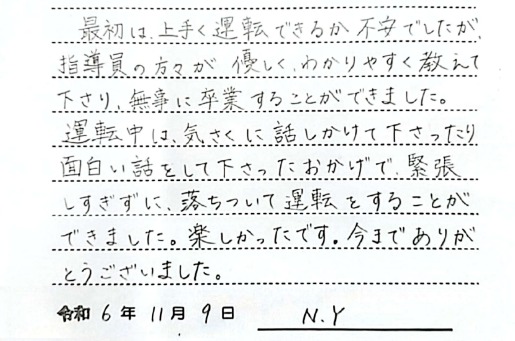 最初は、上手く運転できるか不安でしたが、
指導員の方々が優しく、わかりやすく教えて
下さり、無事に卒業することができました。
運転中は、気さくに話しかけて下さったり
面白い話をして下さったおかげで、緊張
しすぎずに、落ちついて運転をすることが
できました。楽しかったです。今までありが
とうございました。
令和6年11月9日 N.Y